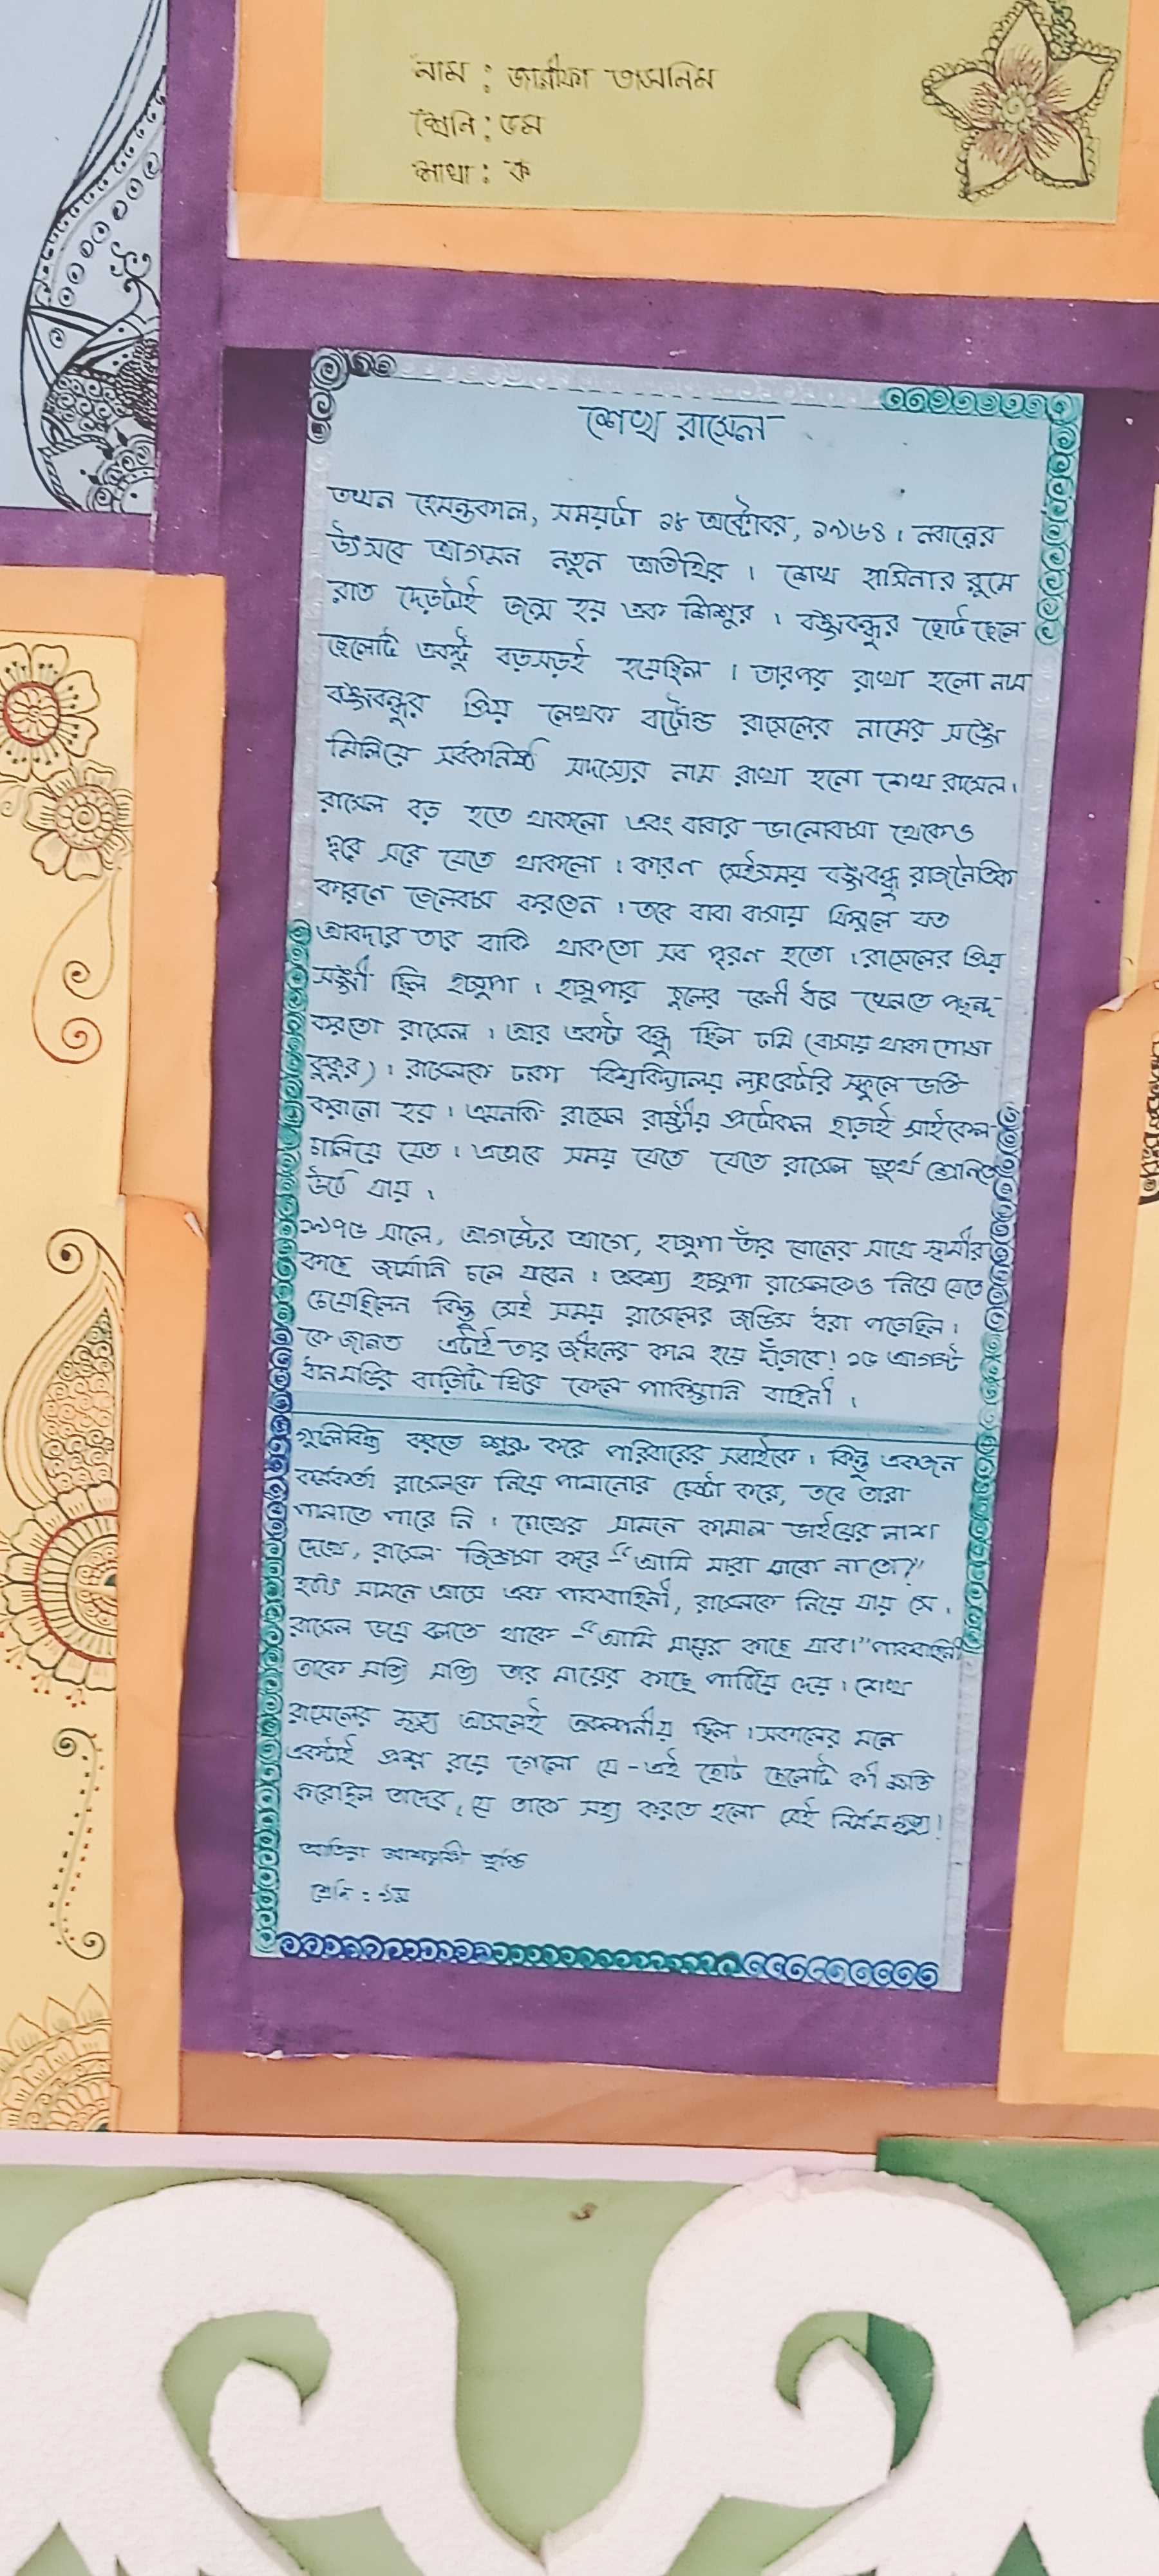 নাম : জারীফা তাসনিম
শ্রেনি : ৬ষ্ঠ
শাখা : ক
শেখ রাসেল
তখন হেমন্তকাল, সময়টা ১৮ অক্টোবর, ১৯৬৪। নবান্নের
উৎসবে আগমন নতুন অতিথির । শেখ হাসিনার রুমে
রাত দেড়টায় জন্ম হয় এক শিশুর । বঙ্গবন্ধুর ছোট ছেলে
ছেলেটি একটু বড়সড়ই হয়েছিল । তারপর রাখা হলো নাম
বঙ্গবন্ধুর প্রিয় লেখক বার্ট্রান্ড রাসেলের নামের সঙ্গে
মিলিয়ে সর্বকনিষ্ঠ সদস্যের নাম রাখা হলো শেখ রাসেল।
রাসেল বড় হতে থাকলো এবং বাবার ভালোবাসা থেকেও
দূরে সরে যেতে থাকলো । কারণ সেইসময় বঙ্গবন্ধু রাজনৈতিক
কারণে জেলবাস করতেন । তবে বাবা বাসায় ফিরলে যত
আবদার তার বাকি থাকতো সব পূরণ হতো । রাসেলের প্রিয়
সঙ্গী ছিল হাসুপা । হাসুপার চুলের বেনী ধরে খেলতে পছন্দ
করতো রাসেল । আর একটা বন্ধু ছিল টমি (বাসায় থাকা পোষা
কুকুর) । রাসেলকে ঢাকা বিশ্ববিদ্যালয় ল্যাবরেটরি স্কুলে ভর্তি
করানো হয় । এমনকি রাসেল রাষ্ট্রীয় প্রটোকল ছাড়াই সাইকেল
চালিয়ে যেত । এভাবে সময় যেতে যেতে রাসেল চতুর্থ শ্রেনিতে
উঠে যায় ।
১৯৭৫ সালে, আগস্টের আগে, হাসুপা তাঁর বোনের সাথে স্বামীর
কাছে জার্মানি চলে যাবেন । অবশ্য হাসুপা রাসেলকেও নিয়ে যেতে
চেয়েছিলেন কিন্তু সেই সময় রাসেলের জন্ডিস ধরা পড়েছিল ।
কে জানত এটাই তার জীবনের কাল হয়ে দাঁড়াবে! ১৫ আগস্ট
ধানমন্ডির বাড়িটি ঘিরে ফেলে পাকিস্তানি বাহিনী ।
গুলিবিদ্ধ করতে শুরু করে পরিবারের সবাইকে । কিন্তু একজন
কর্মকর্তা রাসেলকে নিয়ে পালানোর চেষ্টা করে, তবে তারা
পালাতে পারে নি । চোখের সামনে কামাল ভাইয়ের লাশ
দেখে, রাসেল জিজ্ঞাসা করে - "আমি মারা যাবো না তো?"
হঠাৎ সামনে আসে এক পাকবাহিনী, রাসেলকে নিয়ে যায় সে ।
রাসেল ভয়ে বলতে থাকে - "আমি মায়ের কাছে যাব।" পাকবাহিনী
তাকে সত্যি সত্যি তার মায়ের কাছে পাঠিয়ে দেয় । শেখ
রাসেলের মৃত্যু আসলেই অকল্পনীয় ছিল । সকলের মনে
একটাই প্রশ্ন রয়ে গেলো যে - এই ছোট ছেলেটি কী ক্ষতি
করেছিল তাদের, যে তাকে সহ্য করতে হলো সেই নির্মম মৃত্যু!
শ্রেনি : ৯ম